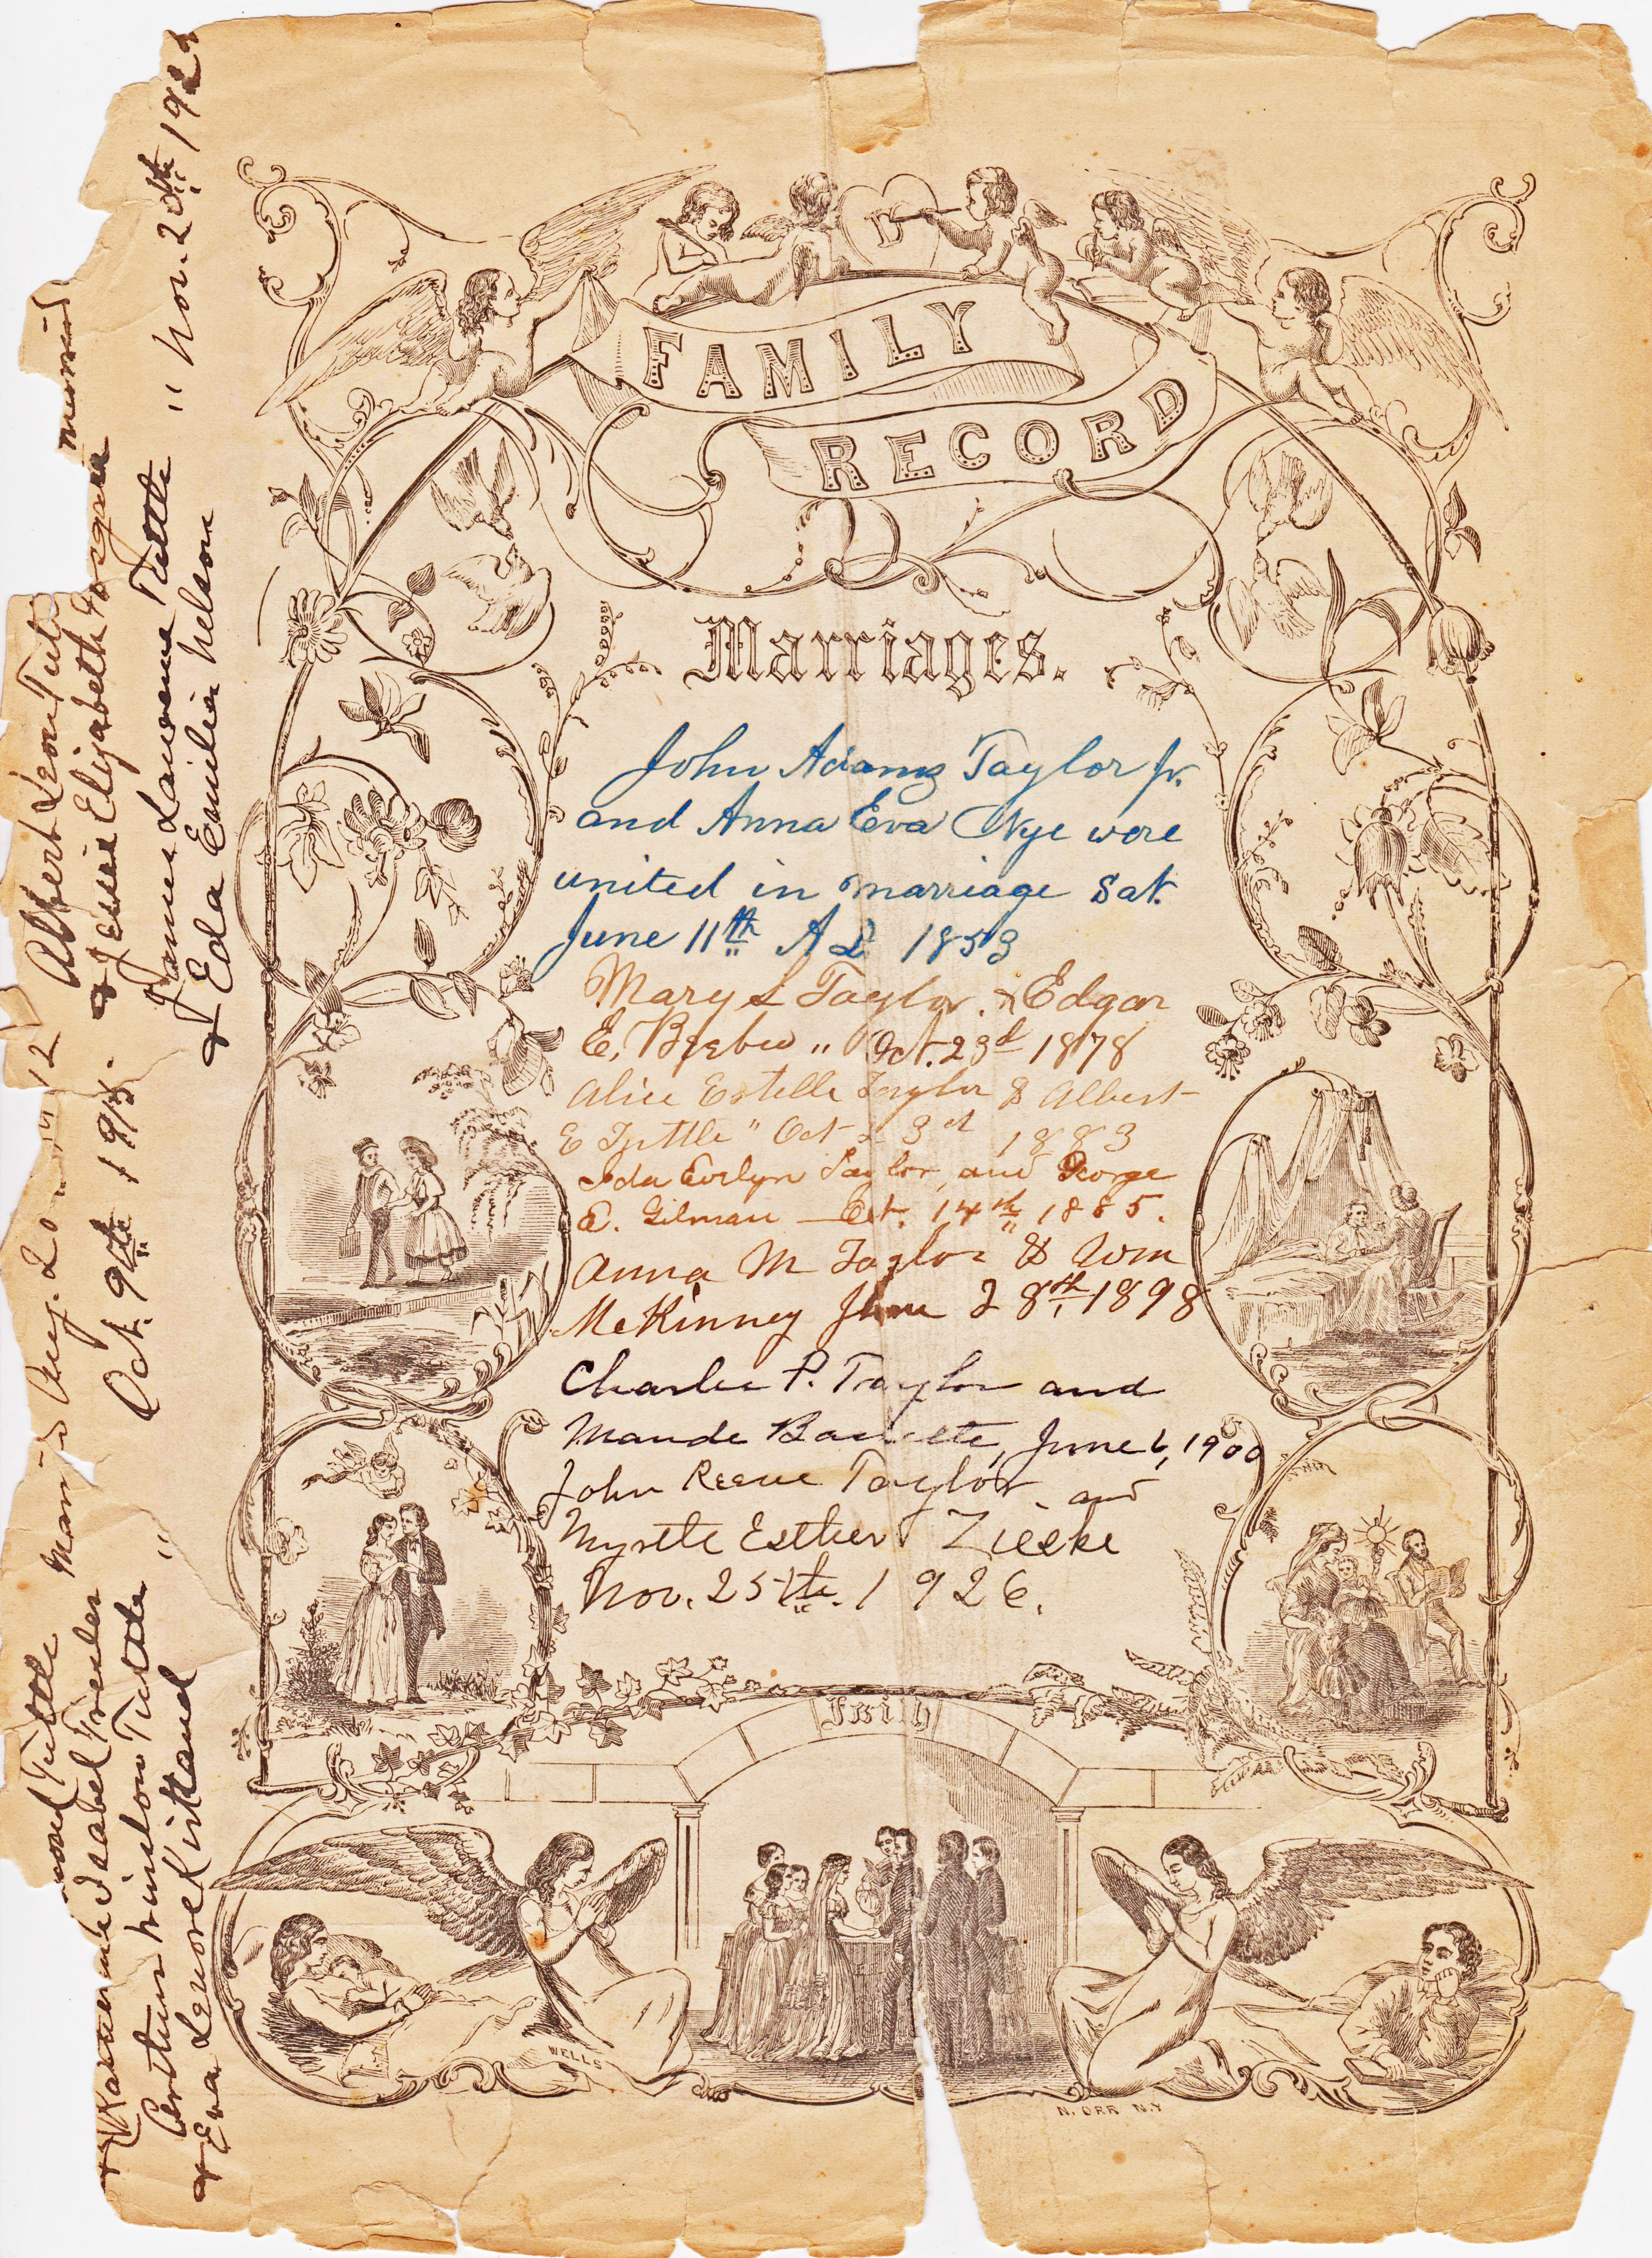 FAMILY
RECORD
Marriages.
John Adams Taylor Jr.
and Anna Eva Nye were
united in marriage Sat.
June 11th A D 1853
Mary L Taylor. & Edgar
E. " Oct. 23d 1878
Alice Estelle Taylor & Albert
E Tuttle " Oct 23d 1883
Ida Evelyn Taylor, and George
E. Gilman — Oct. 14th 1885.
Anna M Taylor & Wm
McKinney June 28th 1898
Charlie P. Taylor and
Maude June 6, 1900
John Reeve Taylor and
Myrtle Esther Zieske
Nov. 25th. 1926.
Faith
WELLS
N. ORR N.Y
Tuttle Married Aug. 20
& Katherine Isabel
Arthur Winslow Tuttle " Oct. 9th 1915.
& Eva Lenore Kirtland
Albert Leon Tut married
& Jessie Elizabeth
James Lawrence Tuttle " Nov. 20th 192
& Eda Emilia Nelson